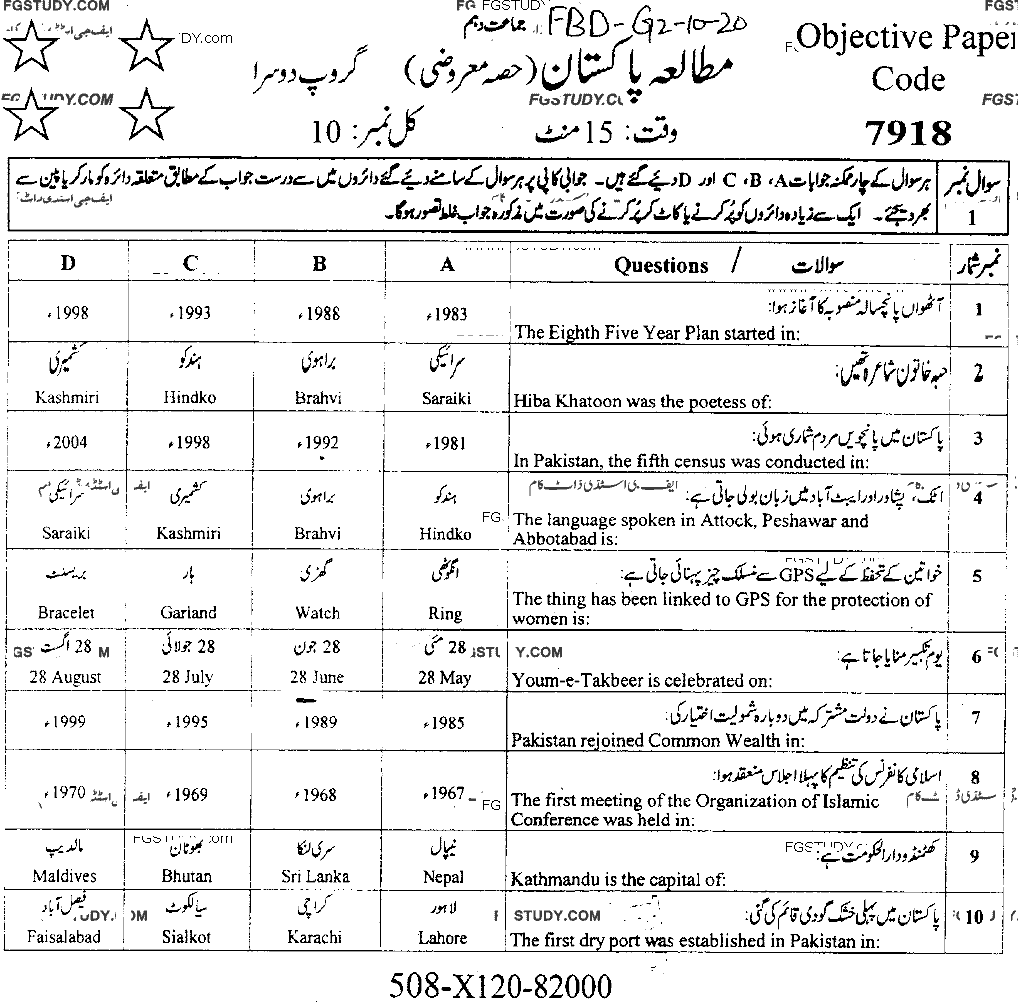 FGSTUDY.COM
FBD-G2-10-20
جماعت دہم
Objective Paper
Code
7918
مطالعہ پاکستان (حصہ معروضی) گروپ دوسرا
FGSTUDY.COM
وقت: 15 منٹ کل نمبر: 10
سوال نمبر 1
ہر سوال کے چار ممکنہ جوابات A، B، C اور D دیئے گئے ہیں۔ جوابی کاپی پر ہر سوال کے سامنے دیئے گئے دائروں میں سے درست جواب کے مطابق متعلقہ دائرہ کو مارکر یا پین سے
بھر دیجئے۔ ایک سے زیادہ دائروں کو پُر کرنے یا کاٹ کر پُر کرنے کی صورت میں مذکورہ جواب غلط تصور ہوگا۔
D C B A Questions / سوالات نمبر شمار
آٹھواں پانچسالہ منصوبہ کا آغاز ہوا: 1
1998ء 1993ء 1988ء 1983ء
The Eighth Five Year Plan started in:
کشمیری ہندکو براہوی سرائیکی حبہ خاتون شاعرہ تھیں: 2
Kashmiri Hindko Brahvi Saraiki Hiba Khatoon was the poetess of:
پاکستان میں پانچویں مردم شماری ہوئی: 3
2004ء 1998ء 1992ء 1981ء
In Pakistan, the fifth census was conducted in:
سرائیکی کشمیری براہوی ہندکو اٹک، پشاور اور ایبٹ آباد میں زبان بولی جاتی ہے: 4
Saraiki Kashmiri Brahvi Hindko The language spoken in Attock, Peshawar and
Abbotabad is:
بریسلٹ ہار گھڑی انگوٹھی خواتین کے تحفظ کے لیے GPS سے منسلک چیز پہنائی جاتی ہے: 5
Bracelet Garland Watch Ring The thing has been linked to GPS for the protection of
women is:
28 اگست 28 جولائی 28 جون 28 مئی یوم تکبیر منایا جاتا ہے: 6
28 August 28 July 28 June 28 May Youm-e-Takbeer is celebrated on:
پاکستان نے دولت مشترکہ میں دوبارہ شمولیت اختیار کی: 7
1999ء 1995ء 1989ء 1985ء
Pakistan rejoined Common Wealth in:
اسلامی کانفرنس کی تنظیم کا پہلا اجلاس منعقد ہوا: 8
1970ء 1969ء 1968ء 1967ء The first meeting of the Organization of Islamic
Conference was held in:
مالدیپ بھوٹان سری لنکا نیپال کھٹمنڈو دارالحکومت ہے: 9
Maldives Bhutan Sri Lanka Nepal Kathmandu is the capital of:
فیصل آباد سیالکوٹ کراچی لاہور پاکستان میں پہلی خشک گودی قائم کی گئی: 10
Faisalabad Sialkot Karachi Lahore The first dry port was established in Pakistan in:
508-X120-82000